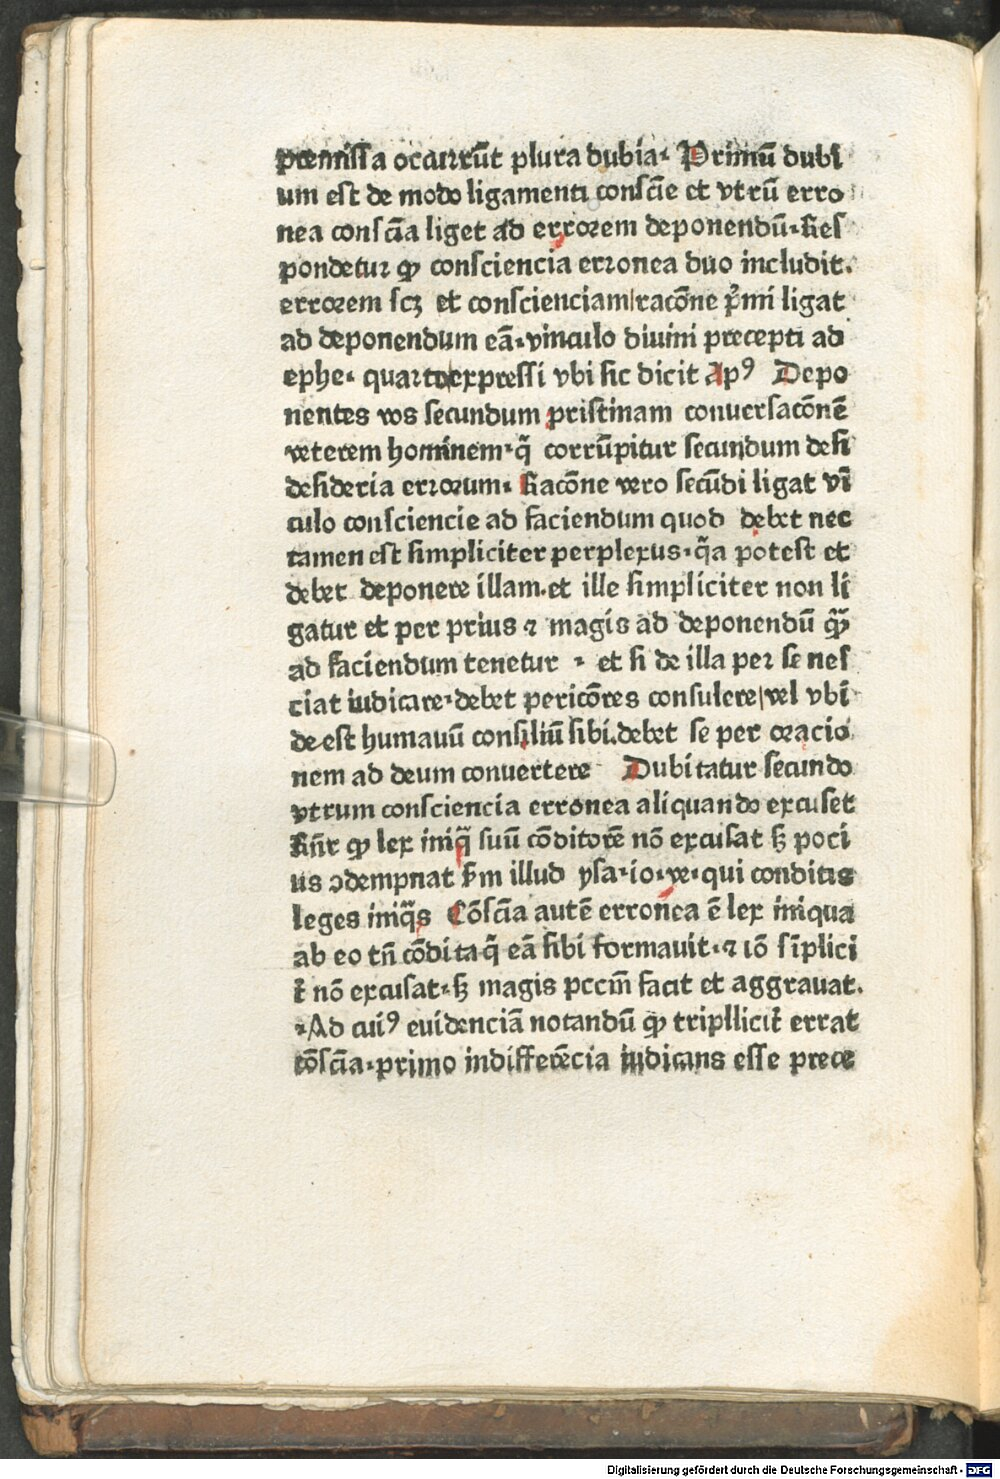 premissa occurrūt plura dubia· Primū dubi
um est de modo ligamenti consciē et vtrū erro
nea conscīa liget ad errorem deponendū·Res
pondetur ꝙ consciencia erronea duo includit.
errorem scꝫ et conscienciam|racōne pͥmi ligat
ad deponendum eā·vinculo diuini precepti ad
ephe· quarto|expressi vbi sic dicit Apꝰ Depo
nentes vos secundum pristinam conuersacōnē
veterem hominem·q̄ corrūpitur secundum desi
desideria errorum· Racōne vero secūdi ligat vī
culo consciencie ad faciendum quod debet nec
tamen est simpliciter perplexus·q̄a potest et
debet deponere illam.et ille simpliciter non li
gatur et per prius ⁊ magis ad deponendū qͣ̄
ad faciendum tenetur · et si de illa per se nes
ciat iudicare·debet pericōres consulere|vel vbi
de est humauū consiliū sibi.debet se per oracio
nem ad deum conuertere Dubitatur secundo
vtrum consciencia erronea aliquando excuset
Rn̄r ꝙ lex iniq̄ suū cōditorē nō excusat sꝫ poci
us ↄdempnat scd̄m illud ysa·io·ve·qui conditis
leges iniq̄s Cōscīa autē erronea ē lex iniqua
ab eo tn̄ cōdita q̄ eā sibi formauit·⁊ iō sīplici
t̄ nō excusat·sꝫ magis pccm̄ facit et aggrauat.
·Ad cuiꝰ euidenciā notandū ꝙ tripllicit̄ errat
cōscīa·primo indifferēcia iudicans esse prece
Digitalisierung gefördert durch die Deutsche Forschungsgemeinschaft - DFG